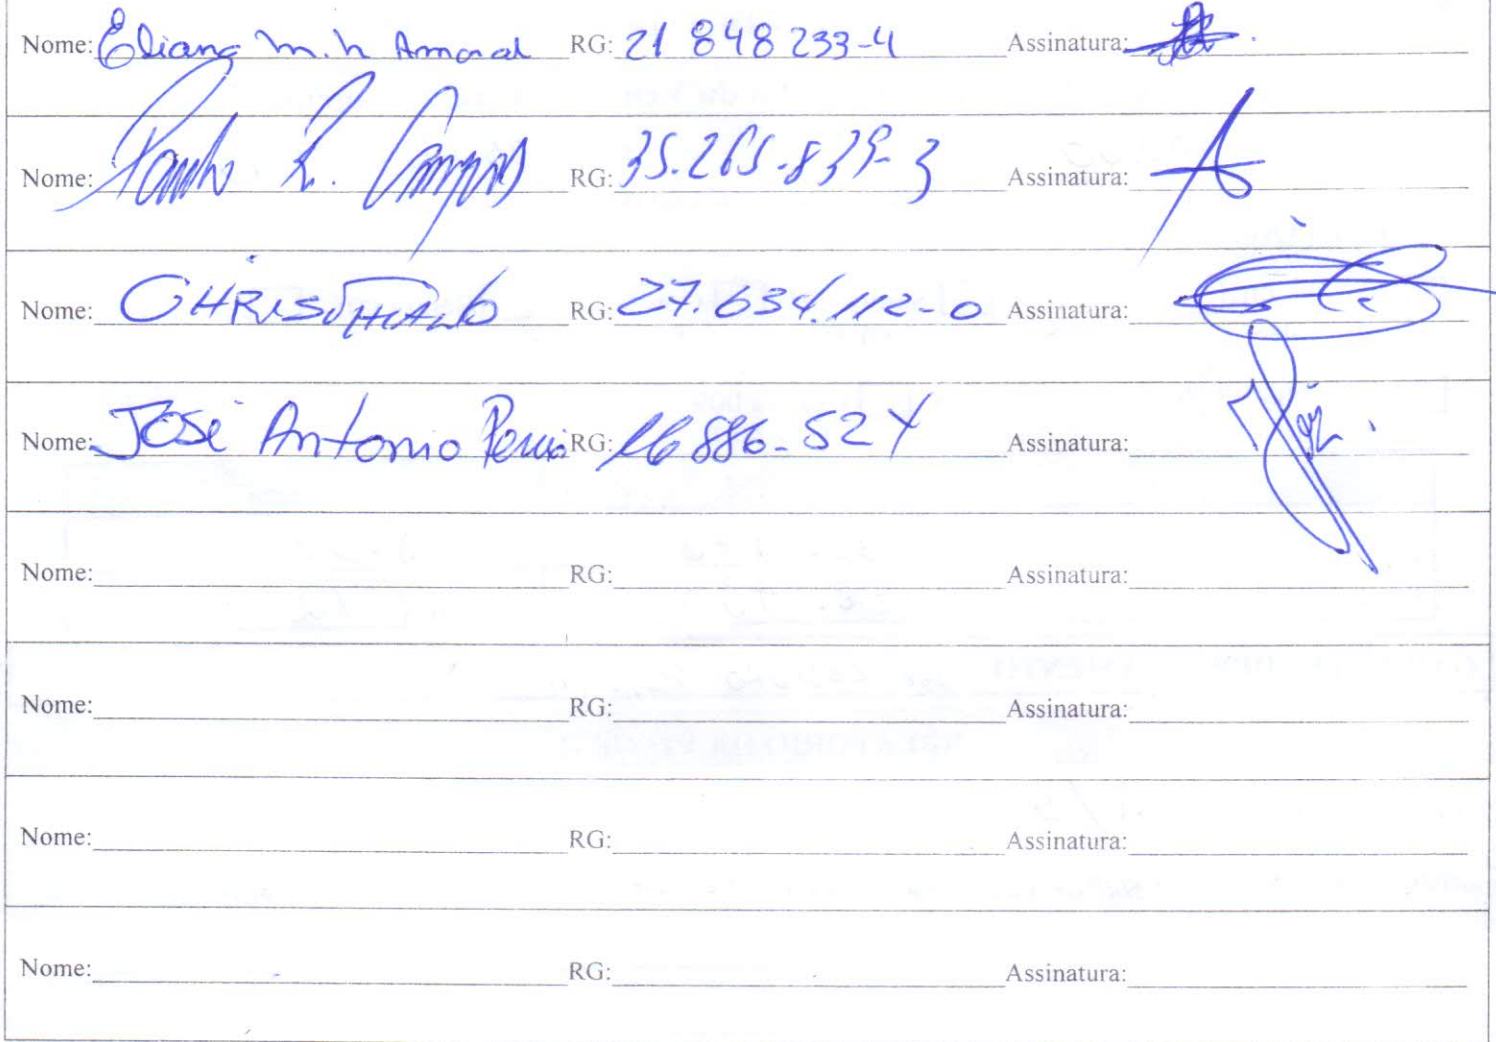 Nome: Eliana m. h Amaral RG: 21 848 233-4 Assinatura:
Nome: Paulo R. Campos RG: 35.265.839-3 Assinatura:
Nome: RG: 27.634.112-0 Assinatura:
Nome: José Antonio RG: 16 886-524 Assinatura:
Nome: RG: Assinatura:
Nome: RG: Assinatura:
Nome: RG: Assinatura:
Nome: RG: Assinatura: